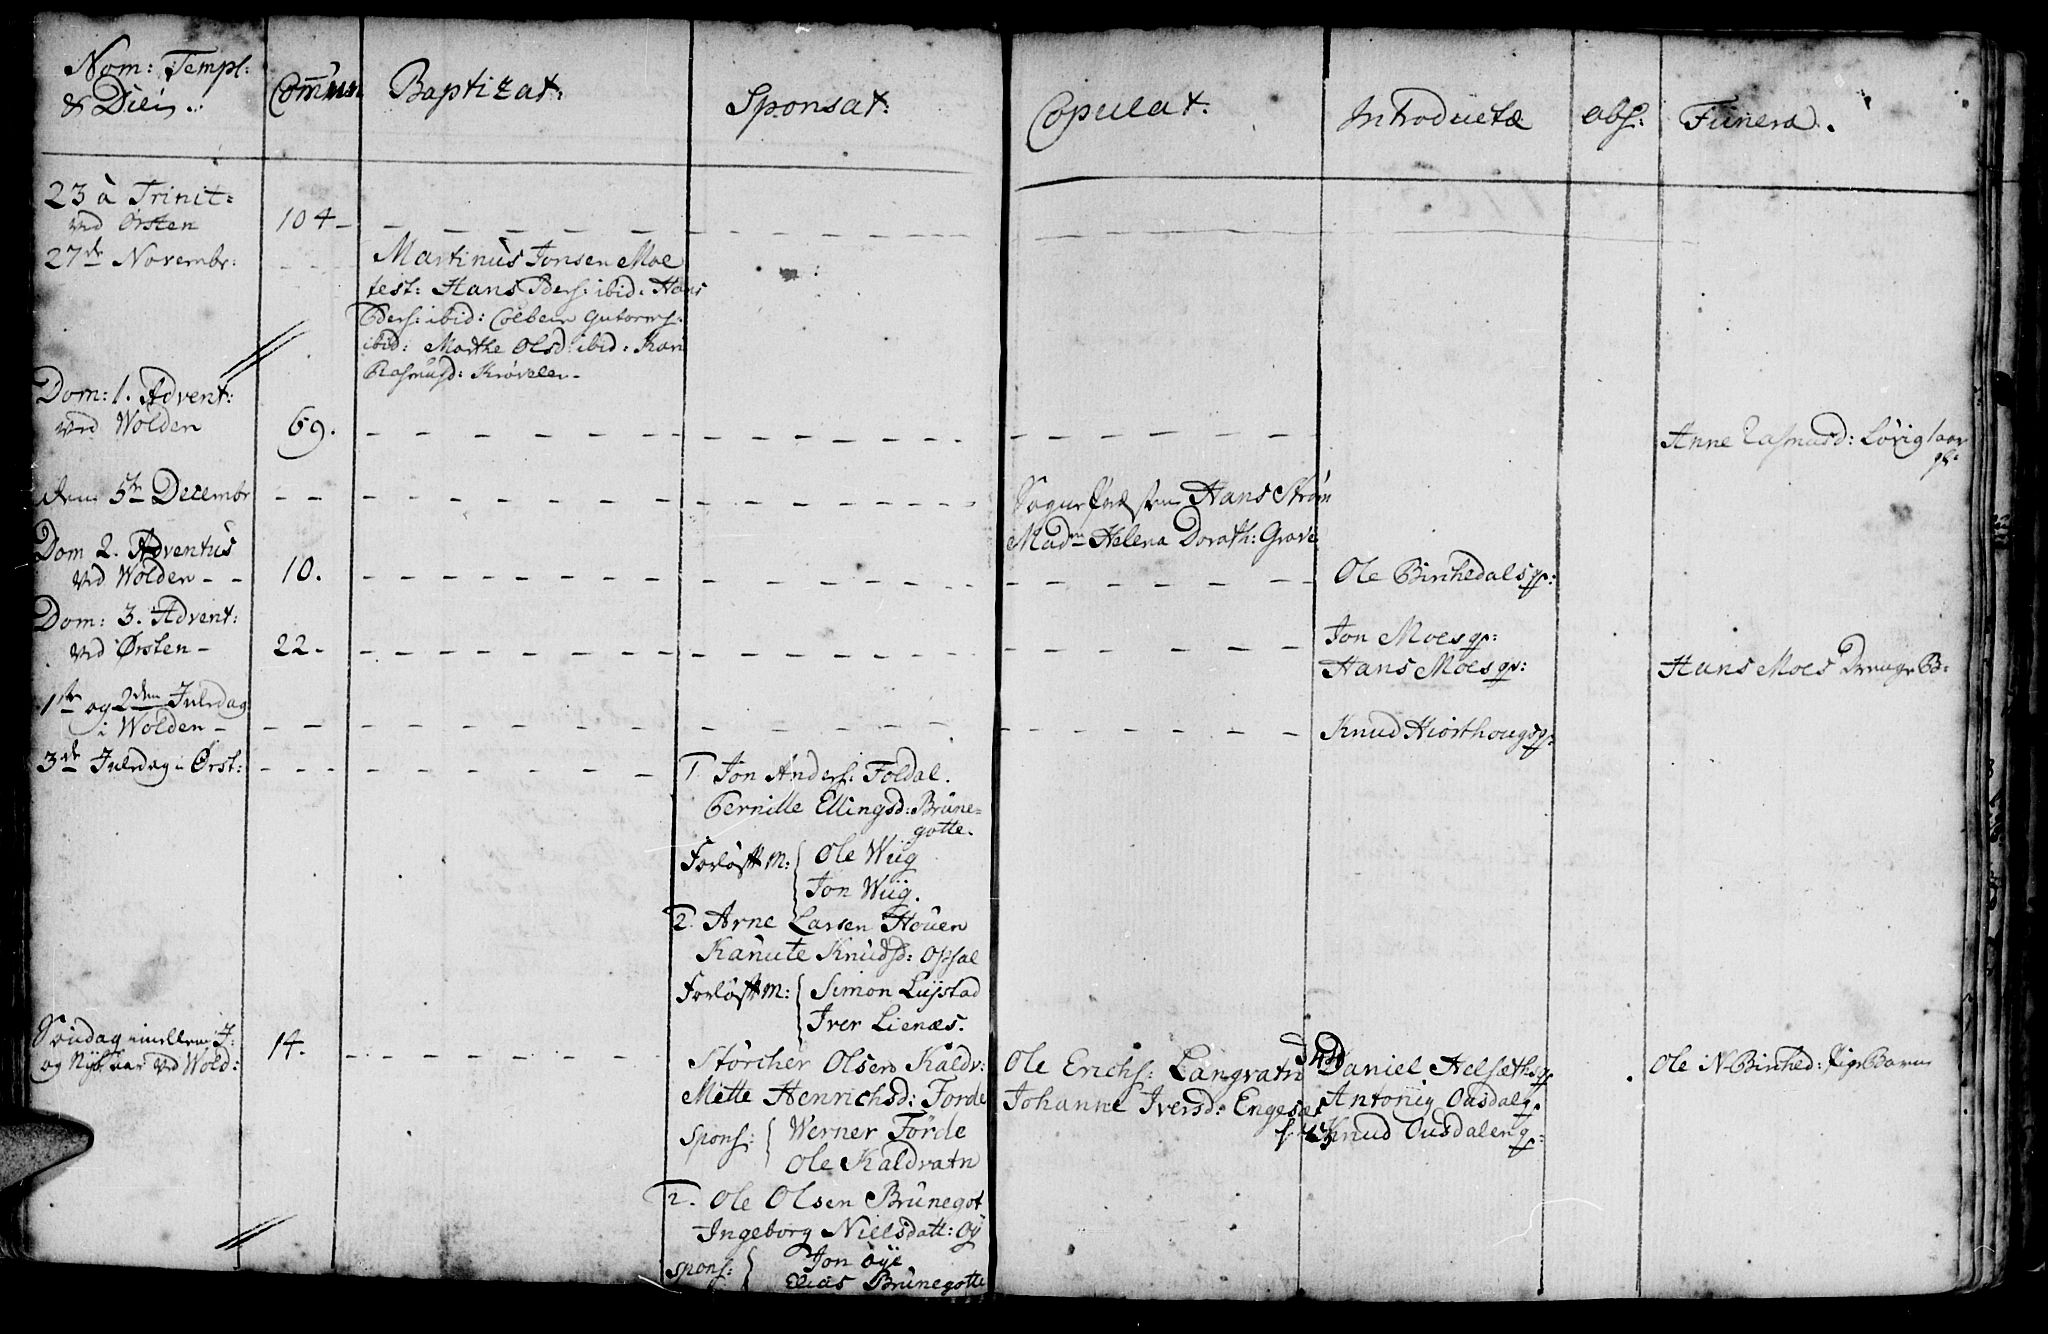 Nom: Templ:
& Diei.:
Com̄un
Baptizat:
Sponsat:
Copulat:
Introductæ
abs:
Funera.
23 à Trinit:
ved Ørsten
104 -
27de Novembr:
Martinus Jonsen Moe
test: Hans Pders: ibid. Hans
Pders: ibid: Colbein Gutorms:
ibid: Marthe Olsd: ibid: Kari
Rasmusd: Krøvelen
Dom: 1. Advent:
ved Wolden
69.
Anne Rasmusd: Løvig 1 aar
gl:
Den 5te Decembr
Sogne Præsten Hans Strøm
Madm Helena Dorath: Grave
Dom 2. Adventus
ved Wolden - -
10.
Ole Birchedals qv:
Dom: 3. Advent:
ved Ørsten -
22.
Jon Moes qv:
Hans Moes qv:
Hans Moes Drenge B:
1ste og 2den Juledag
i Wolden -
Knud Hiorthougs qv:
3de Juledag i Ørst:
1. Jon Anders: Foldal.
Pernille Ellingsd: Brune-
gotte.
Forløft M: Ole Wiig
Jon Wiig.
2. Arne Larsen Houen
Kanute Knudsd: Opsal
Forløft M: Simon Lystad
Iver Lienæs.
Søndag imellem J:
og Nyt aar ved Wold:
14.
Størcher Olsen Kaldv:
Mette Henrichsd: Forde
Spons: Werner Förde
Ole Kaldvatn
2. Ole Olsen Brunegot
Ingeborg Nielsdatt: Oÿ
Spons: Jon Oÿe
Elias Brunegotte
Ole Erichs: Langvatn
Johanne Iversd: Engeset
Daniel Helsæths qv
Antoniÿ Ousdal qv.
Knud Ousdalen qv:
Ole N. Birched: Pige Barn